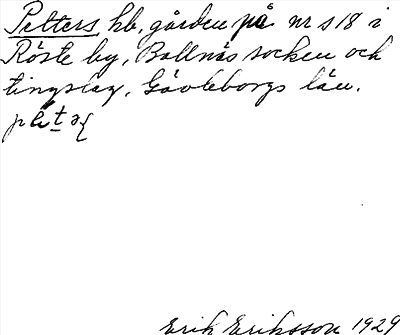 Petters hb, gården på nr s 18 i
Röste by, Bollnäs socken och
tingslag, Gävleborgs län.
Erik Eriksson 1929